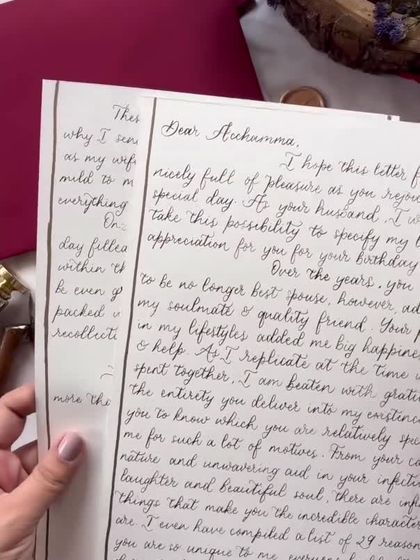 Thes
why I sen
as my wife
mild to m
everything
On
day filled
within th
be even g
packed w
recollecti
more the
Dear Acchamma,
I hope this letter f
nicely full of pleasure as you rejoi
special day. As your husband, I w
take this possibility to specify my
appreciation for you for your birthday
Over the years, you
to be no longer best spouse, however, ad
my soulmate & quality friend. Your p
in my lifestyles added me big happine
& help. As I replicate at the time u
spent together, I am beaten with grati
the entirety you deliver into my existence
you to know which you are relatively spe
me for such a lot of motives. From your ca
nature and unwavering aid in your infecti
laughter and beautiful soul, there are infi
things that make you the incredible character
are. I even have compiled a list of 29 reason
you are so unique to me